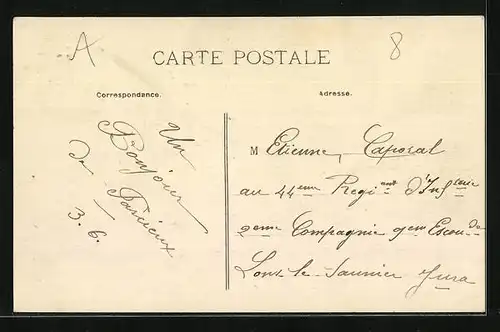 A
8
CARTE POSTALE
Correspondance.
Adresse.
Un
Bonjour
de Parcieux
3.6.
M Etienne, Caporal
au 44eme Regiment d'Infterie
2eme Compagnie 9em Escouade
Lons-le-Saunier Jura